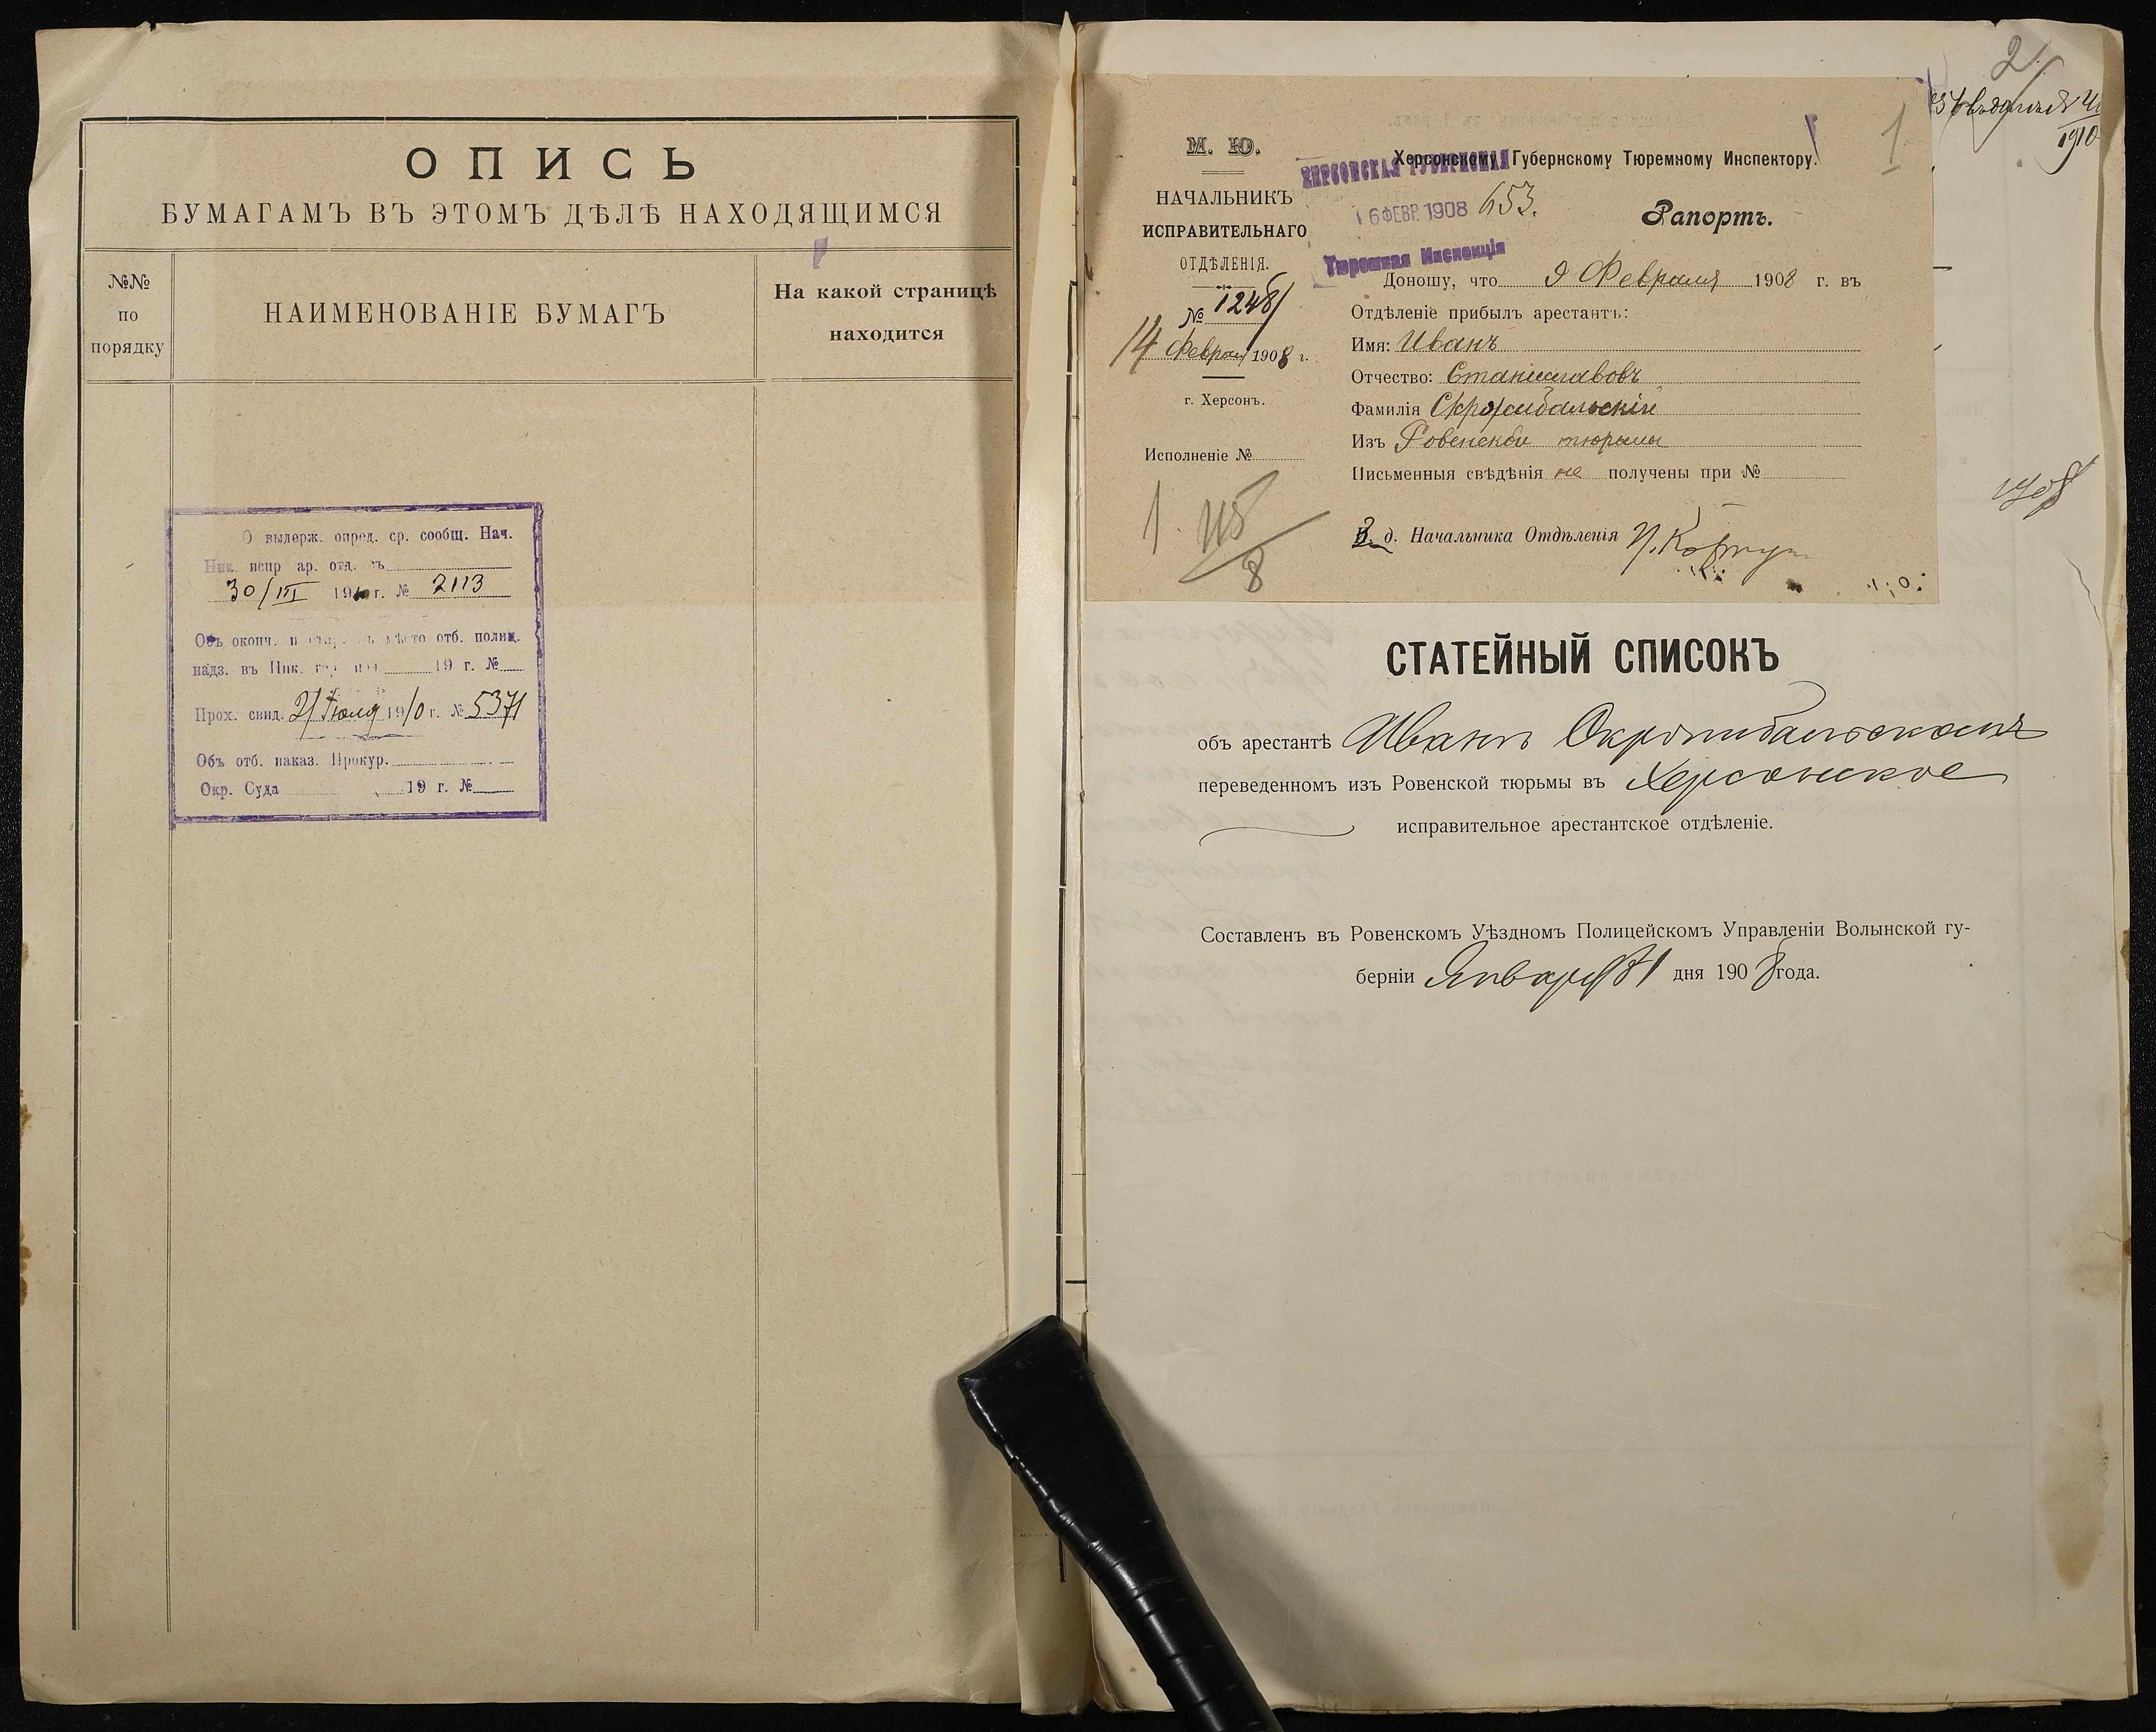 ОПИСЬ
БУМАГАМЪ ВЪ ЭТОМЪ ДѢЛѢ НАХОДЯЩИМСЯ
№№
по
порядку
НАИМЕНОВАНІЕ БУМАГЪ
На какой страницѣ
находится
О вылерж. опред. ср. сообщ. Нач.
Ник. испр ар. отд.
30/III 19 г. № 2113
мѣсто отб. полиц.
надз. въ Ник. 19 г. №
Прох. свид. 21 Іюля 1910 г. № 5371
Объ отб. наказ. Прокур.
Окр. Суда 19 г. №
2
1910
1
М. Ю.
НАЧАЛЬНИКЪ
ИСПРАВИТЕЛЬНАГО
ОТДѢЛЕНІЯ.
№ 1248
14 Феврал 1908 г.
г. Херсонъ.
Исполненіе №
Херсонскому Губернскому Тюремному Инспектору.
ХЕРСОНСКАЯ ГУБЕРНСКАЯ
16 ФЕВР. 1908 653.
Тюремная Инспекція
Рапортъ.
Доношу, что 9 Февраля 1908 г. въ
Отдѣленіе прибылъ арестантъ:
Имя: Иванъ
Отчество: Станиславовъ
Фамилія
Изъ Ровенской тюрьмы
Письменныя свѣдѣнія не получены при №
д. Начальника Отдѣленія
СТАТЕЙНЫЙ СПИСОКЪ
объ арестантѣ
переведенномъ изъ Ровенской тюрьмы въ Херсонское
исправительное арестантское отдѣленіе.
Составленъ въ Ровенскомъ Уѣздномъ Полицейскомъ Управленіи Волынской гу-
берніи Января 31 дня 1908 года.